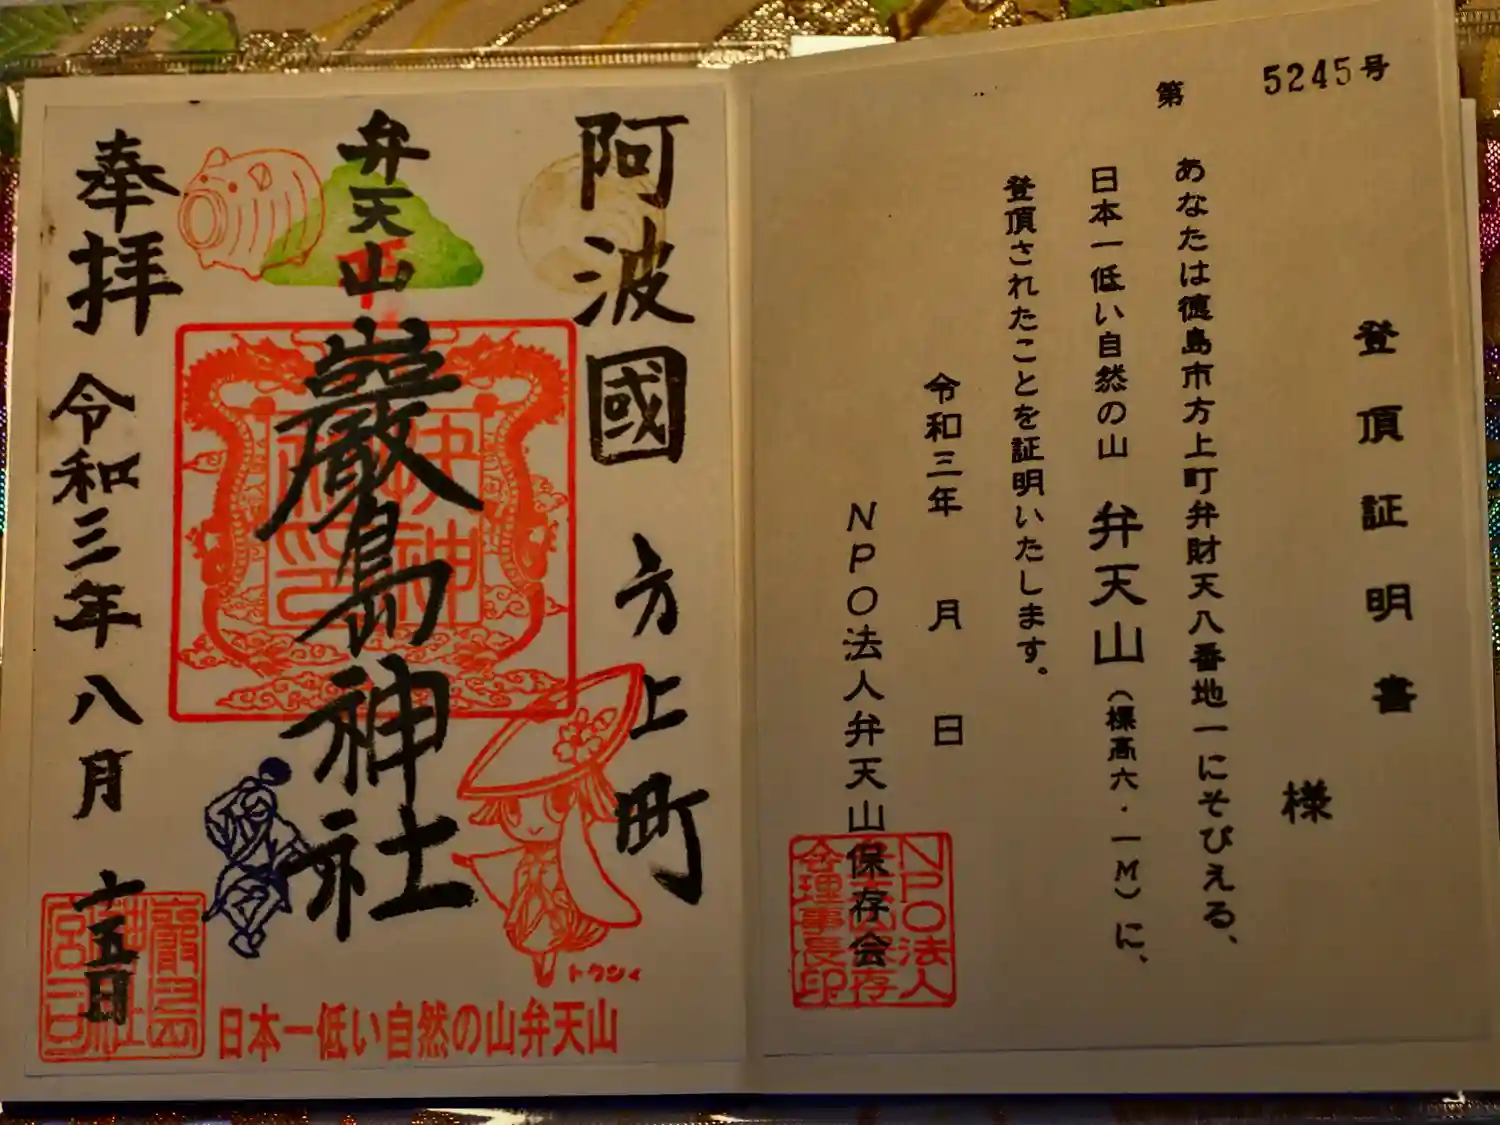 第 5245号
登頂証明書
様
あなたは徳島市方上町弁財天八番地一にそびえる、
日本一低い自然の山 弁天山（標高六・一M）に、
登頂されたことを証明いたします。
令和三年 月 日
NPO法人弁天山保存会
阿波國 方上町
弁天山
嚴島神社
奉拝 令和三年八月 十五日
トクシィ
日本一低い自然の山弁天山